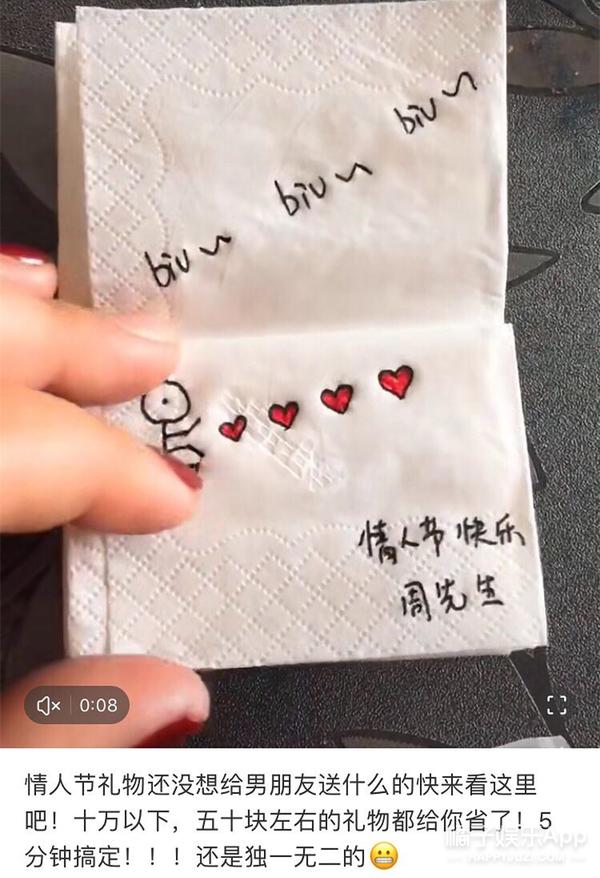 biu~
biu~
biu~
情人节快乐
周先生
0:08
情人节礼物还没想给男朋友送什么的快来看这里
吧！十万以下，五十块左右的礼物都给你省了！5
分钟搞定！！！还是独一无二的😬
橘子娱乐App